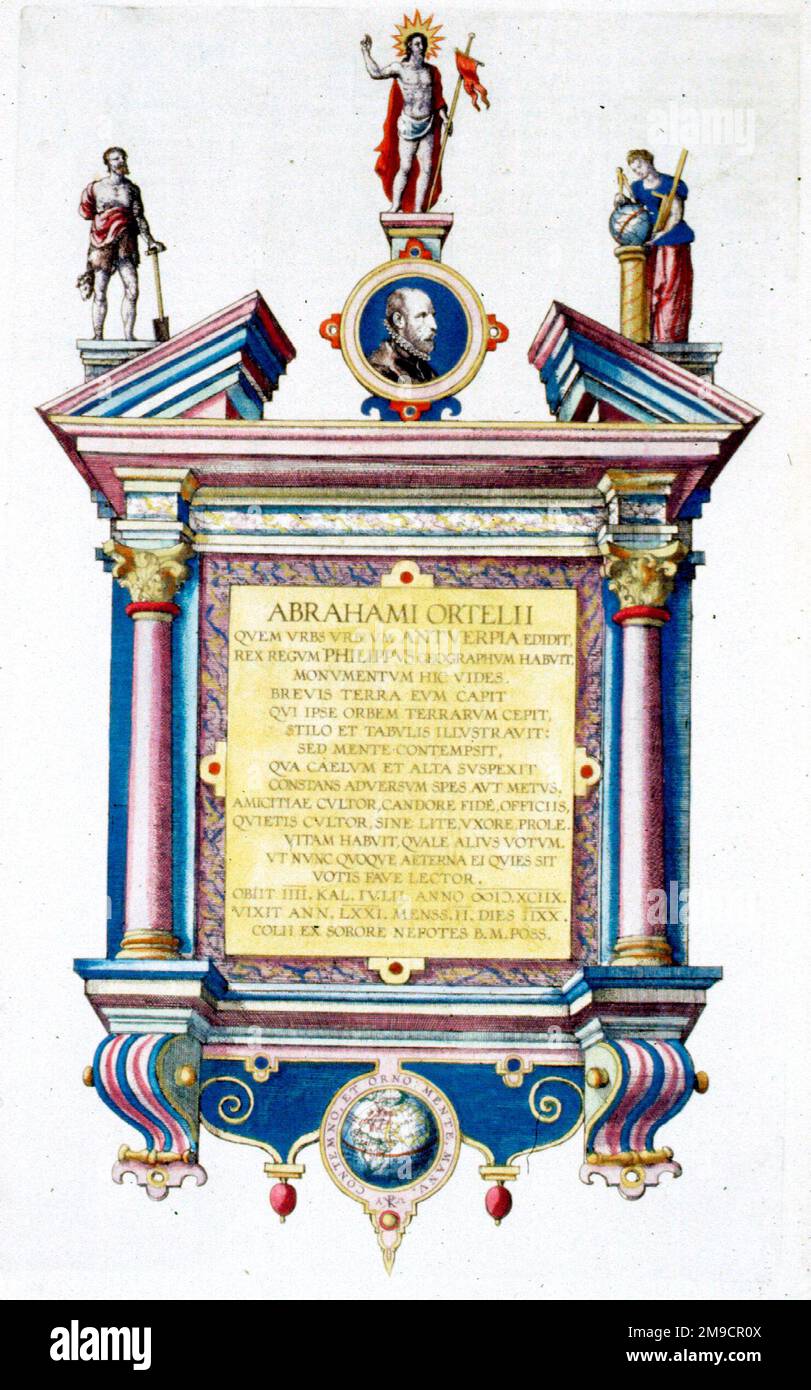 alamy
ABRAHAMI ORTELII
QVEM VRBS VRBIVM ANTVERPIA EDIDIT,
REX REGVM PHILIPPVS GEOGRAPHVM HABVIT,
MONVMENTVM HIC VIDES.
BREVIS TERRA EVM CAPIT
QVI IPSE ORBEM TERRARVM CEPIT,
STILO ET TABVLIS ILLVSTRAVIT:
SED MENTE CONTEMPSIT,
QVA CAELVM ET ALTA SVSPEXIT
CONSTANS ADVERSVM SPES AVT METVS,
AMICITIAE CVLTOR, CANDORE FIDE, OFFICIIS,
QVIETIS CVLTOR, SINE LITE, VXORE PROLE.
VITAM HABVIT, QVALE ALIVS VOTVM.
VT NVNC QVOQVE AETERNA EI QVIES SIT
VOTIS FAVE LECTOR.
OBIIT IIII. KAL. IVLII ANNO ∞IↃ.XCIIX.
VIXIT ANN. LXXI. MENSS. II. DIES IIXX.
COLII EX SORORE NEPOTES B.M. POSS.
CONTEMNO, ET ORNO: MENTE, MANV.
a
alamy
Image ID: 2M9CR0X
www.alamy.com